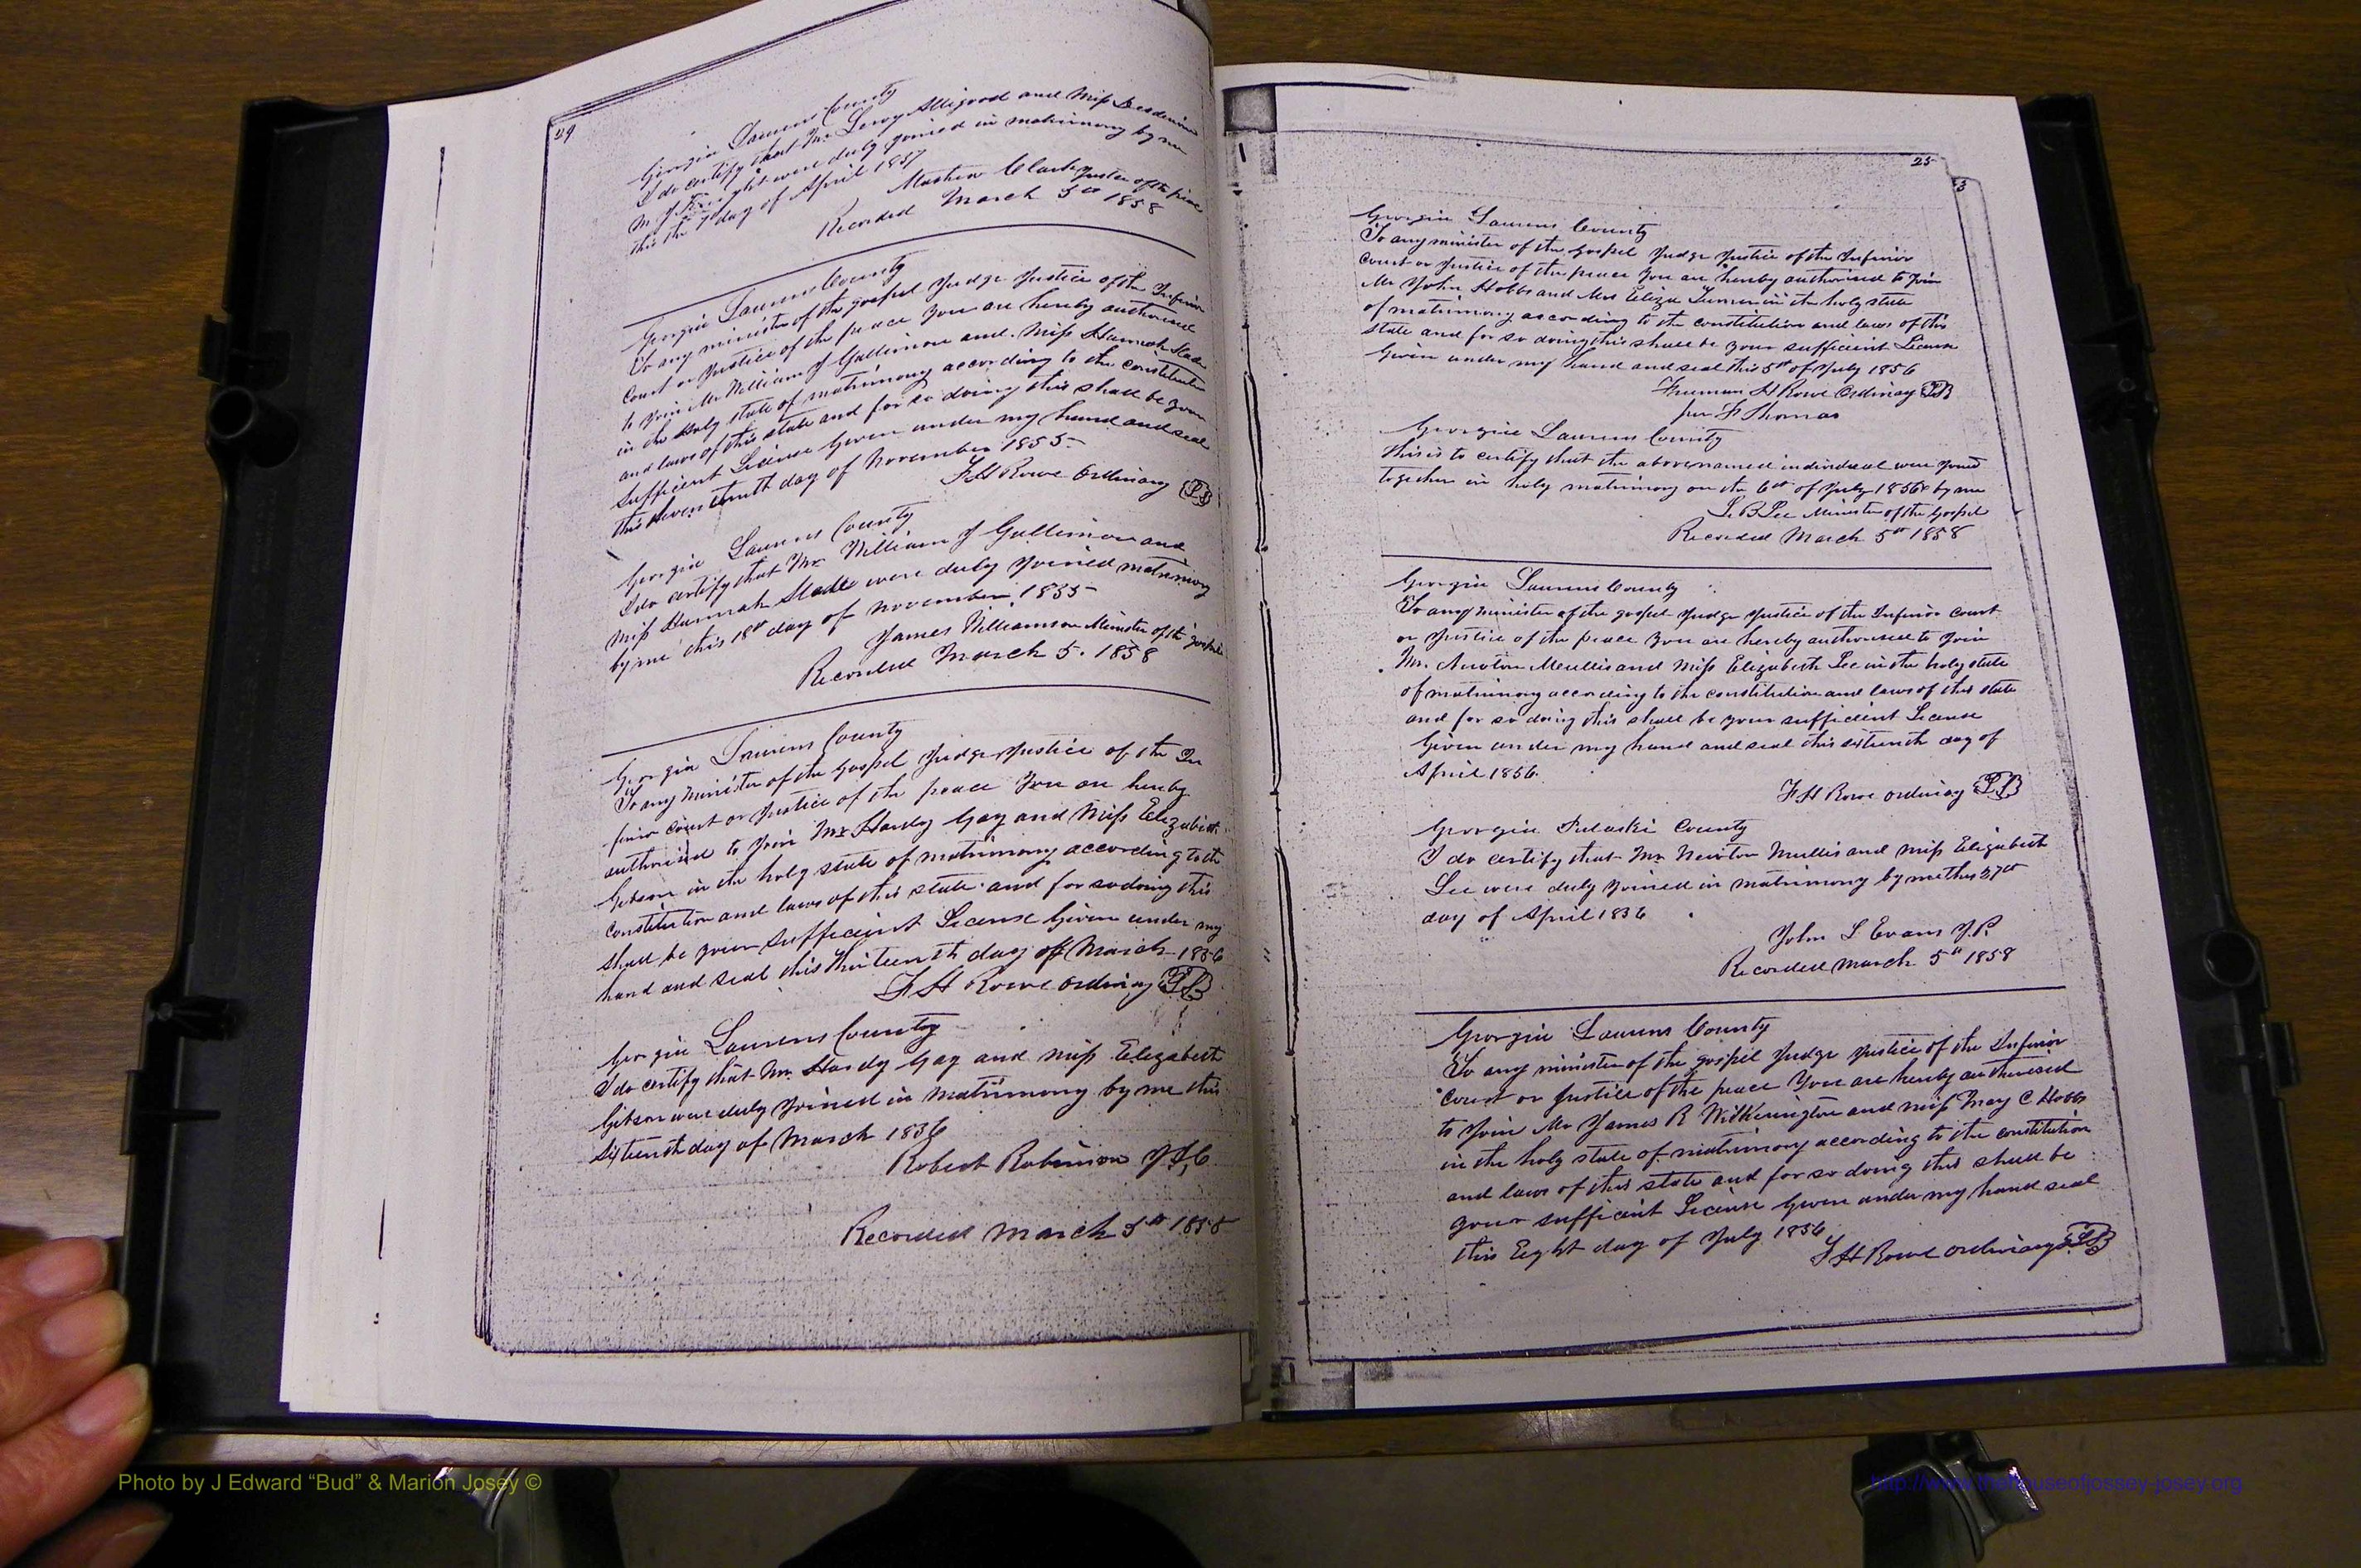 24
Georgia Laurens County
I do certify that Mr. Leroy Alligood and Miss
were duly joined in matrimony by me
this the 7 day of April 1857
Clark Justice of the peace
Recorded March 5th 1858
Georgia Laurens County
To any minister of the gospel Judge Justice of the Inferior
Court or Justice of the peace You are hereby authorised
to join Mr William J Gallimore and Miss Hannah Slade
in the Holy state of matrimony according to the constitution
and laws of this state and for so doing this shall be your
sufficient License Given under my hand and seal
this seventeenth day of November 1855
F H Rowe Ordinary LS
Georgia Laurens County
I do certify that Mr William J Gallimore and
Miss Hannah Slade were duly joined matrimony
by me this 18th day of November 1855
James Williamson Minister of the gospel
Recorded March 5. 1858
Georgia Laurens County
To any minister of the gospel Judge Justice of the In
ferior Court or Justice of the peace You are hereby
authorised to join Mr Hardy Gay and Miss Elizabeth
Gibson in the holy state of matrimony according to the
constitution and laws of this state and for so doing this
shall be your sufficient License Given under my
hand and seal this thirteenth day of March 1856
F H Rowe ordinary LS
Georgia Laurens County
I do certify that Mr. Hardy Gay and miss Elizabeth
Gibson were duly joined in matrimony by me this
sixteenth day of March 1856
Robert Robinson J.I.C.
Recorded March 5th 1858
25
3
Georgia Laurens County
To any minister of the gospel Judge Justice of the Inferior
Court or Justice of the peace You are hereby authorised to join
Mr John Hobbs and Mrs Eliza in the holy state
of matrimony according to the constitution and laws of this
state and for so doing this shall be your sufficient License
Given under my hand and seal this 5th of July 1856
Freeman H Rowe Ordinary LS
per F Thomas
Georgia Laurens County
This is to certify that the above named individual were joined
together in holy matrimony on the 6th of July 1856 by me
L B Lee Minister of the Gospel
Recorded March 5th 1858
Georgia Laurens County
To any minister of the gospel Judge Justice of the Inferior Court
or Justice of the peace You are hereby authorised to join
Mr. Newton Mullis and Miss Elizabeth Lee in the holy state
of matrimony according to the constitution and laws of this state
and for so doing this shall be your sufficient License
Given under my hand and seal this sixteenth day of
April 1856
F H Rowe ordinary LS
Georgia Pulaski County
I do certify that Mr Newton Mullis and miss Elizabeth
Lee were duly joined in matrimony by me this 27th
day of April 1856
John L Evans J.P.
Recorded March 5th 1858
Georgia Laurens County
To any minister of the gospel Judge Justice of the Inferior
Court or Justice of the peace You are hereby authorised
to join Mr James R Witherington and miss Mary C Hobbs
in the holy state of matrimony according to the constitution
and laws of this state and for so doing this shall be
your sufficient License Given under my hand seal
this Eight day of July 1856
F H Rowe ordinary LS
Photo by J Edward “Bud” & Marion Josey ©
http://www.thehouseofjossey-josey.org